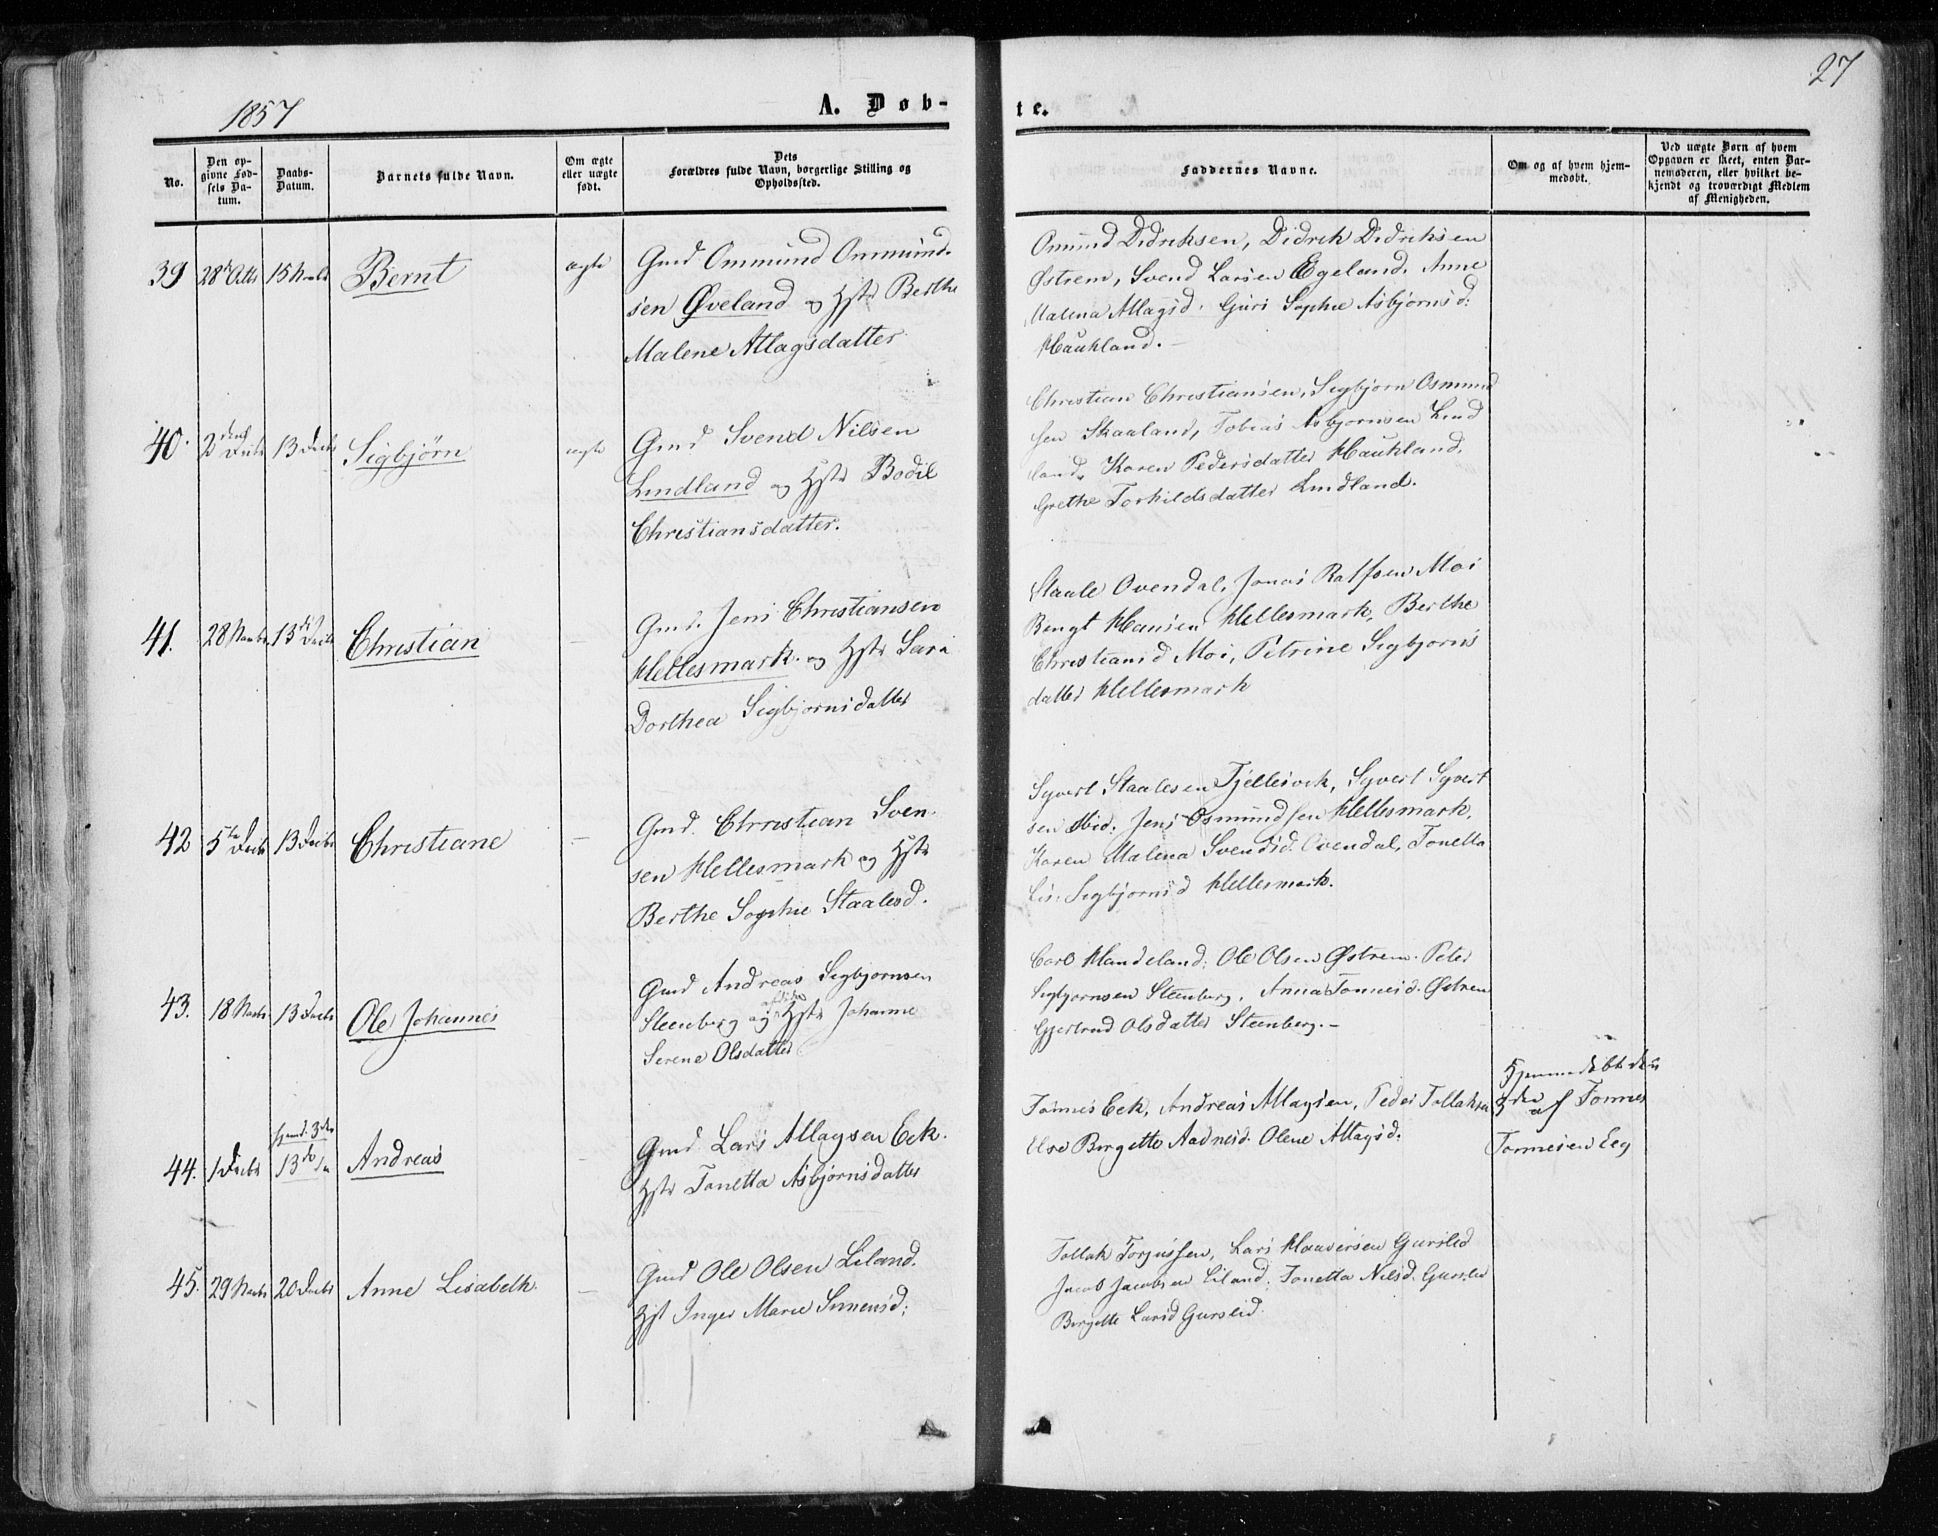 27
1857
A. Døb-
te.
No.
Den op-
givne Fød-
sels Da-
tum.
Daabs-
Datum.
Barnets fulde Navn.
Om ægte
eller uægte
født.
Dets
Forældres fulde Navn, borgerlige Stilling og
Opholdssted.
Faddernes Navne.
Om og af hvem hjem-
medøbt.
Ved uægte Born af hvem
Opgaven er skeet, enten Bar-
nemoderen, eller hvilket be-
kjendt og troværdigt Medlem
af Menigheden.
39
28de Octbr
15 Novbr
Bernt
ægte
Gmd Ommund Ommund-
sen Øveland og Hstr Berthe
Malene Atlagsdatter
Omund Didriksen, Didrik Didriksen
Østrem, Svend Larsen Egeland. Anne
Malena Atlagsd. Guri Sophie Asbjørnsd:
Haukland.
40.
2den Decbr
13 Decbr
Sigbjørn
ægte
Gmd Svend Nilsen
Lindland og Hstr Bodil
Christiansdatter.
Christian Christiansen, Sigbjørn Osmund
sen Skaaland, Tobias Asbjornsen Lind
land, Karen Pedersdatter Haukland,
Grethe Torkildsdatter Lindland.
41.
28 Novbr
13de Decbr
Christian
Gmd. Jens Christiansen
Hellesmark. og Hstr Sara
Dorthea Sigbjornsdatter
Staale Ovendal, Jonas Ralfsen Moi
Bengt Hansen Hellesmark, Berthe
Christiansd Moi, Petrine Sigbjorns
datter Hellesmark
42
5te Decbr
13 Decbr
Christiane
—
Gmd. Christian Sven-
sen Hellesmark og Hstr
Berthe Sophie Staalesd.
Syvert Staalesen Fjellesvik, Syvert Syvert
sen ibid: Jens Osmundsen Hellesmark,
Karen Malena Svendsd. Ovendal, Tonetta
Lis: Sigbjornsd Hellesmark.
43.
18 Novbr
13 Decbr
Ole Johannes
—
Gmd Andreas Sigbjornsen
Steenberg og Hstr Johanne
Serene Olsdatter
Carl Handeland: Ole Olsen Østrem. Peter
Sigbjornsen Steenberg, Anna Tonnesd. Østrem
Gjertrud Olsdatter Steenberg.—
44.
1 Decbr
hjemd. 3die
13do
Andreas
—
Gmd. Lars Atlagsen Eek.
Hstr Tonetta Asbjørnsdatter
Tonnes Eek, Andreas Atlagsen, Peder Tollaksen
Else Birgitte Aadnesd. Olene Atlagsd.
Hjemmedøbt den
3die af Tonnes
Tonnesen Eeg
45.
29 Novbr
20 Decbr
Anne Lisabeth
—
Gmd Ole Olsen Liland.
Hst Inger Marie Simensd:
Tollak Torjussen, Lars Haaversen Gurslid
Jacob Jacobsen Liland: Tonetta Nilsd. Gurslid
Birgitte Larsd Gurslid.